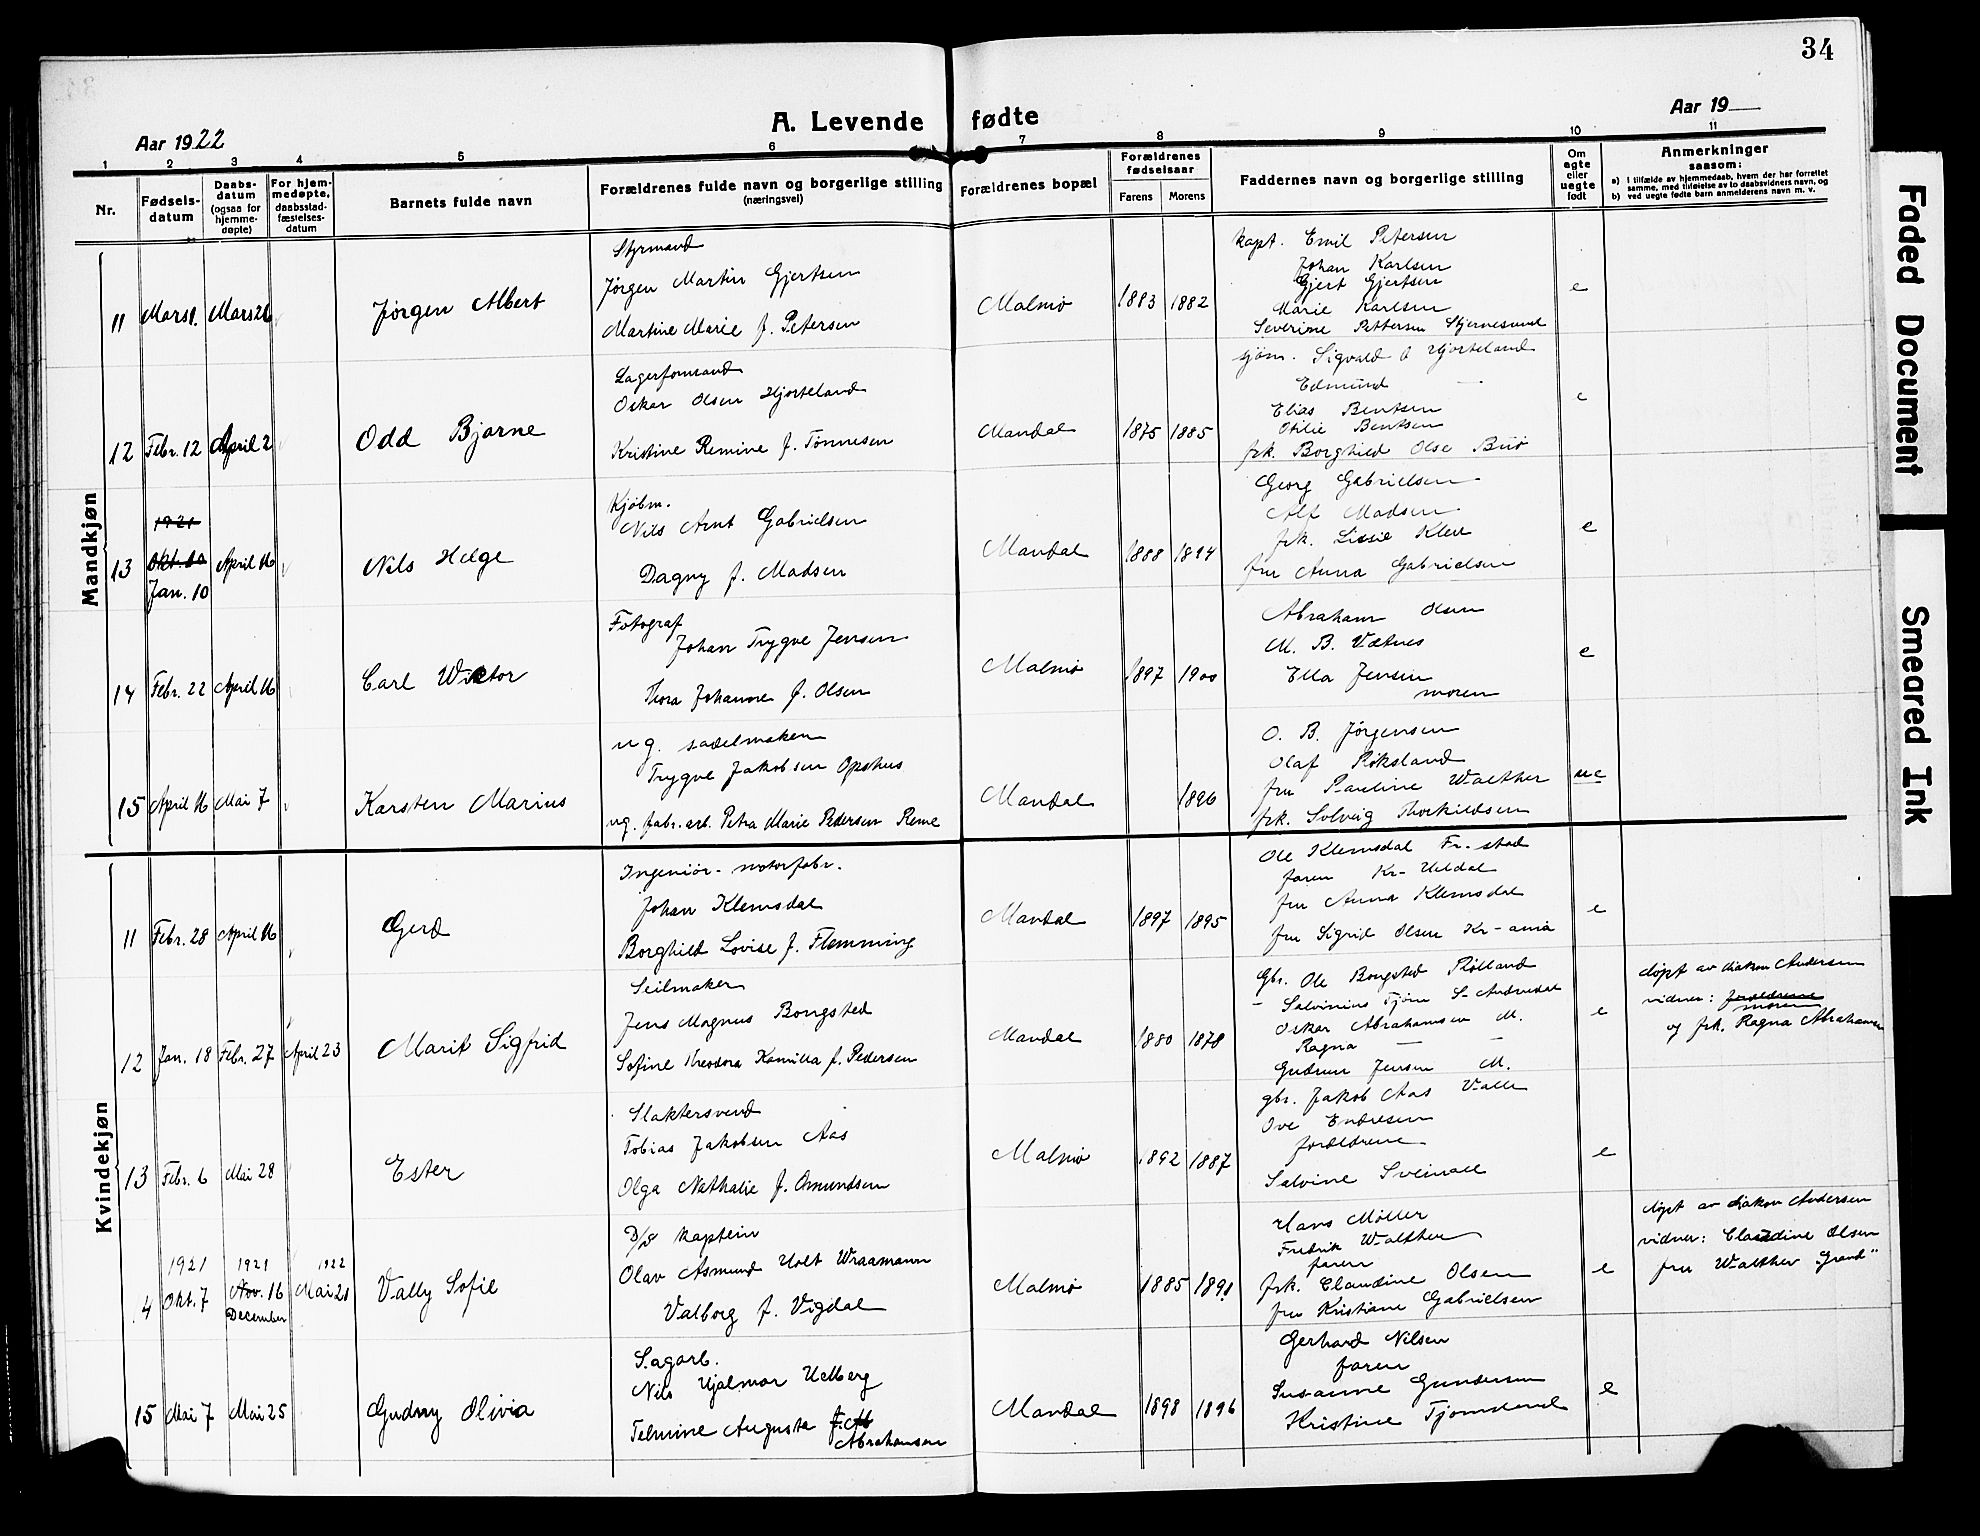 34
Aar 1922
A. Levende fødte
Aar 19
1 2 3 4 5 6 7 8 9 10 11
Nr.
Fødsels-datum
Daabs-datum (ogsaa for hjemme-døpte)
For hjem-medøpte, daabsstad-fæstelses-datum
Barnets fulde navn
Forældrenes fulde navn og borgerlige stilling (næringsvei)
Forældrenes bopæl
Forældrenes fødselsaar
Farens Morens
Faddernes navn og borgerlige stilling
Om egte eller uegte født
Anmerkninger
saasom:
a) I tilfælde av hjemmedaab, hvem der har forrettet samme, med tilføielse av to daabsvidners navn, og
b) ved uegte fødte barn anmelderens navn m. v.
Mandkjøn
11 Mars 1. Mars 26 Jørgen Albert
Styrmand
Jørgen Martin Gjertsen
Martine Marie f. Petersen
Malmø 1883 1882
kapt. Emil Petersen
Johan Karlsen
Gjert Gjertsen
Marie Karlsen
Severine Pettersen Stjernesund
e
12 Febr. 12 April 2 Odd Bjarne
Lagerformand
Oskar Olsen Hjorteland
Kristine Remine f. Tønnesen
Mandal 1875 1885
sjøm. Sigvald O Hjorteland
Edmund —
Elias Bentsen
Otilie Bentsen
frk. Borghild Olse
e
13 1921 Okt. 10 Jan. 10 April 16 Nils Helge
Kjøbm.
Nils Arnt Gabrielsen
Dagny f. Madsen
Mandal 1888 1894
Georg Gabrielsen
Alf Madsen
frk. Lissie Klev
fru Anna Gabrielsen
e
14 Febr. 22 April 16 Carl Wictor
Fotograf
Johan Trygve Jensen
Thora Johanne f. Olsen
Malmø 1897 1900
Abraham Olsen
M. B. Vatnes
Ella Jensen
moren
e
15 April 16 Mai 7 Karsten Marius
ug. sadelmaker
Trygve Jakobsen Opshus
ug. fabr. arb. Petra Marie Pedersen Reme
Mandal 1896
O. B. Jørgensen
Olaf Røksland
fru Pauline Walther
frk. Solveig Thorkildsen
ue
Kvindekjøn
11 Febr. 28 April 16 Gerd
Ingeniør - motorfabr.
Johan Klemsdal
Borghild Lovise f. Flemming
Mandal 1897 1895
Ole Klemsdal Fr.-stad
faren
fru Anna Klemsdal
fru Sigrid Olsen Kr-ania
e
12 Jan. 18 Febr. 27 April 23 Marit Sigfrid
Seilmaker
Jens Magnus Bongsted
Sofine Theodora Kamilla f. Pedersen
Mandal 1880 1878
Gbr. Ole Bongsted
— Salvinius Tjøm S-Audnedal
Oskar Abrahamsen M.
Ragna — —
Gudrun Jensen M.
e
døpt av diakon Andersen
vidner: forældrene
moren
og frk. Ragna Abrahamsen
13 Febr. 6 Mai 28 Ester
Slaktersvend
Tobias Jakobsen Aas
Olga Nathalie f. Omundsen
Malmø 1892 1887
gbr. Jakob Aas Valle
Ove Endresen
forældrene
Salvine Sveinall
e
1921 1921 1922
4 Okt. 7 Nov. 16 December Mai 21 Vally Sofie
D/S kaptein
Olav Asmund Holt Wraamann
Valborg f. Vigdal
Malmø 1885 1891
Hans Møller
Fredrik Walther
faren
frk. Claudine Olsen
fru Kristiane Gabrielsen
e
døpt av diakon Andersen
vidner: Claudine Olsen
fru Walther "Grand"
15 Mai 7 Mai 25 Gudny Olivia
Sagarb.
Nils Hjalmar Helberg
Telmine Auguste f. Ab
Abrahamsen
Mandal 1898 1896
Gerhard Nilsen
faren
Susanne Gundersen
Kristine Tjomsland
e
Faded Document
Smeared Ink